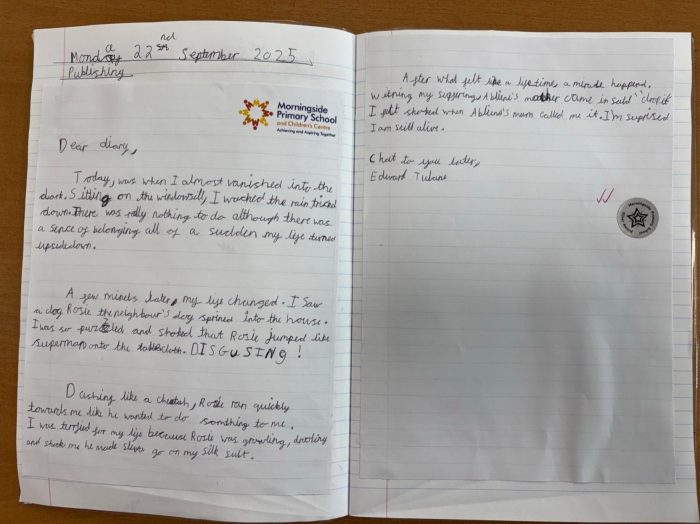 Monday 22nd September 2025
Publishing
Morningside
Primary School
and Children's Centre
Achieving and Aspiring Together
Dear diary,
Today, was when I almost vanished into the
dark. Sitting on the windowsill, I wached the rain trickel
down. There was rally nothing to do although there was
a sence of belonging all of a sudden my life turned
upsidedown.
A few minets later, my life changed. I Saw
a dog Rosie the neighbour's dog sprined into the house.
I was so puzzled and shoked that Rosie jumped like
superman onto the tablecloth. DISGUSING!
Dashing like a cheatah, Rosie ran quickly
towards me like he wanted to do somthing to me.
I was terrfed for my life because Rosie was growling, drooling
and shook me he made slive go on my silk suit.
After what felt like a lifetime, a minute happend.
Witning my suffering Abliene's mother came in said 'drop it'
I felt shoked when Abliene's mum called me it. I'm suprised
I am still alive.
Chat to you later,
Edward Tulane
Morningside